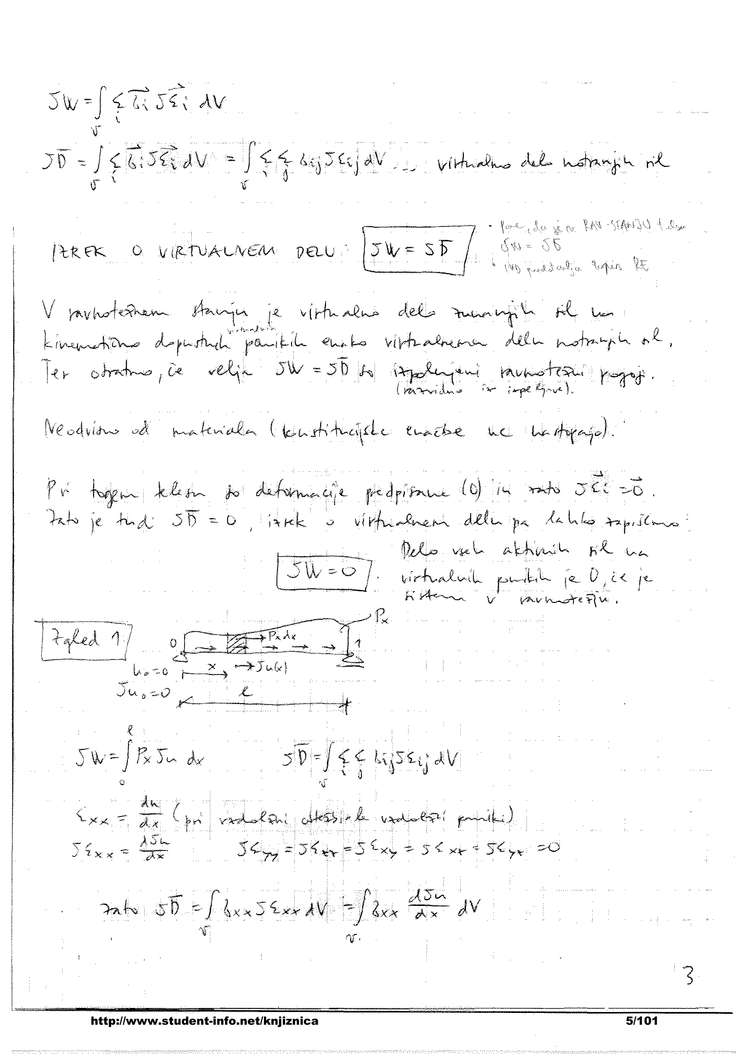 δW = ∫_V Σ_i σ⃗_i δε⃗_i dV
δD̄ = ∫_V Σ_i σ⃗_i δε⃗_i dV = ∫_V Σ_i Σ_j σ_ij δε_ij dV ... virtualno delo notranjih sil
IZREK O VIRTUALNEM DELU: δW = δD̄
δW = δD̄
V ravnotežnem stanju je virtualno delo zunanjih sil na
virtualnih
kinematično dopustnih pomikih enako virtualnemu delu notranjih sil.
Ter obratno, če velja δW = δD̄ so izpolnjeni ravnotežni pogoji.
(razvidno iz izpeljave).
Neodvisno od materiala (konstitucijske enačbe ne nastopajo).
Pri togem telesu so deformacije predpisane (0) in zato δε⃗_i = 0⃗.
Zato je tudi δD̄ = 0, izrek o virtualnem delu pa lahko zapišemo:
δW = 0
Delo vseh aktivnih sil na
virtualnih pomikih je 0, če je
sistem v ravnotežju.
Zgled 1.
0 P_x dx 1 P_x
u_0 = 0 x δu(x)
δu_0 = 0 l
δW = ∫_0^l P_x δu dx δD̄ = ∫_V Σ_i Σ_j σ_ij δε_ij dV
ε_xx = du/dx (pri vzdolžni obtežbi le vzdolžni pomiki)
δε_xx = dδu/dx δε_yy = δε_zz = δε_xy = δε_xz = δε_yz = 0
zato δD̄ = ∫_V σ_xx δε_xx dV = ∫_V σ_xx dδu/dx dV
3
http://www.student-info.net/knjiznica 5/101